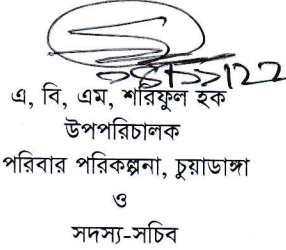 এ, বি, এম, শরিফুল হক
উপপরিচালক
পরিবার পরিকল্পনা, চুয়াডাঙ্গা
ও
সদস্য-সচিব